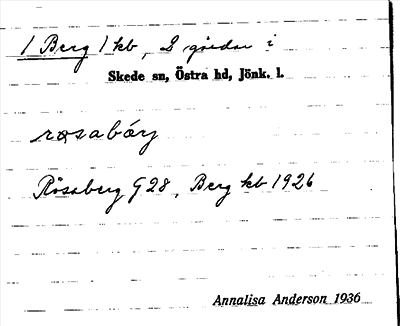 / Berg / kb, 2 gårdar i
Skede sn, Östra hd, Jönk. l.
rosabärj
Rösaberg G28, Berg kb 1926
Annalisa Anderson 1936